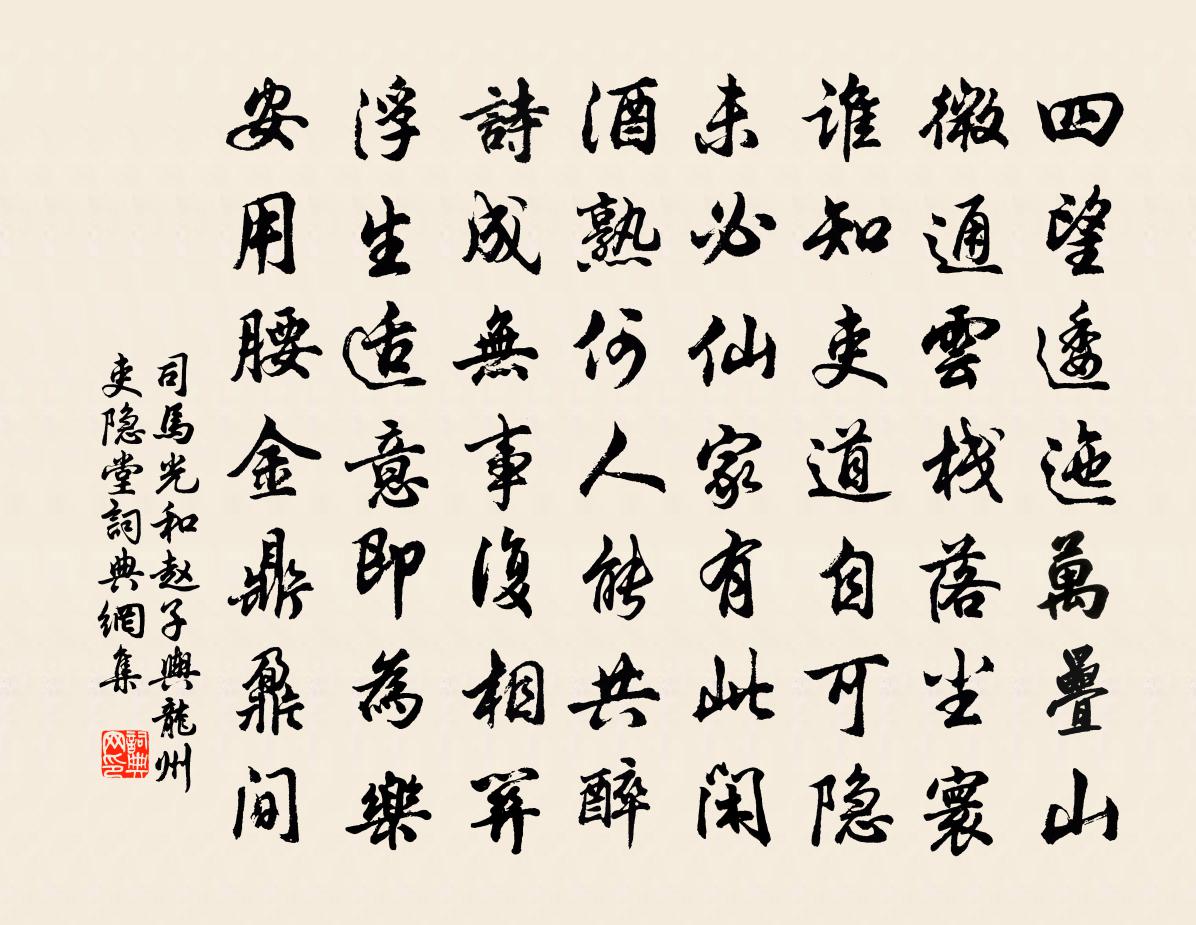 四望逶迤萬疊山
微通雲棧落尘寰
誰知吏道自可隐
未必仙家有此閑
酒熟何人能共醉
詩成無事復相關
浮生适意即為樂
安用腰金鼎鼐間
司馬光和赵子輿龍州
吏隐堂詞典網集
詞典网印